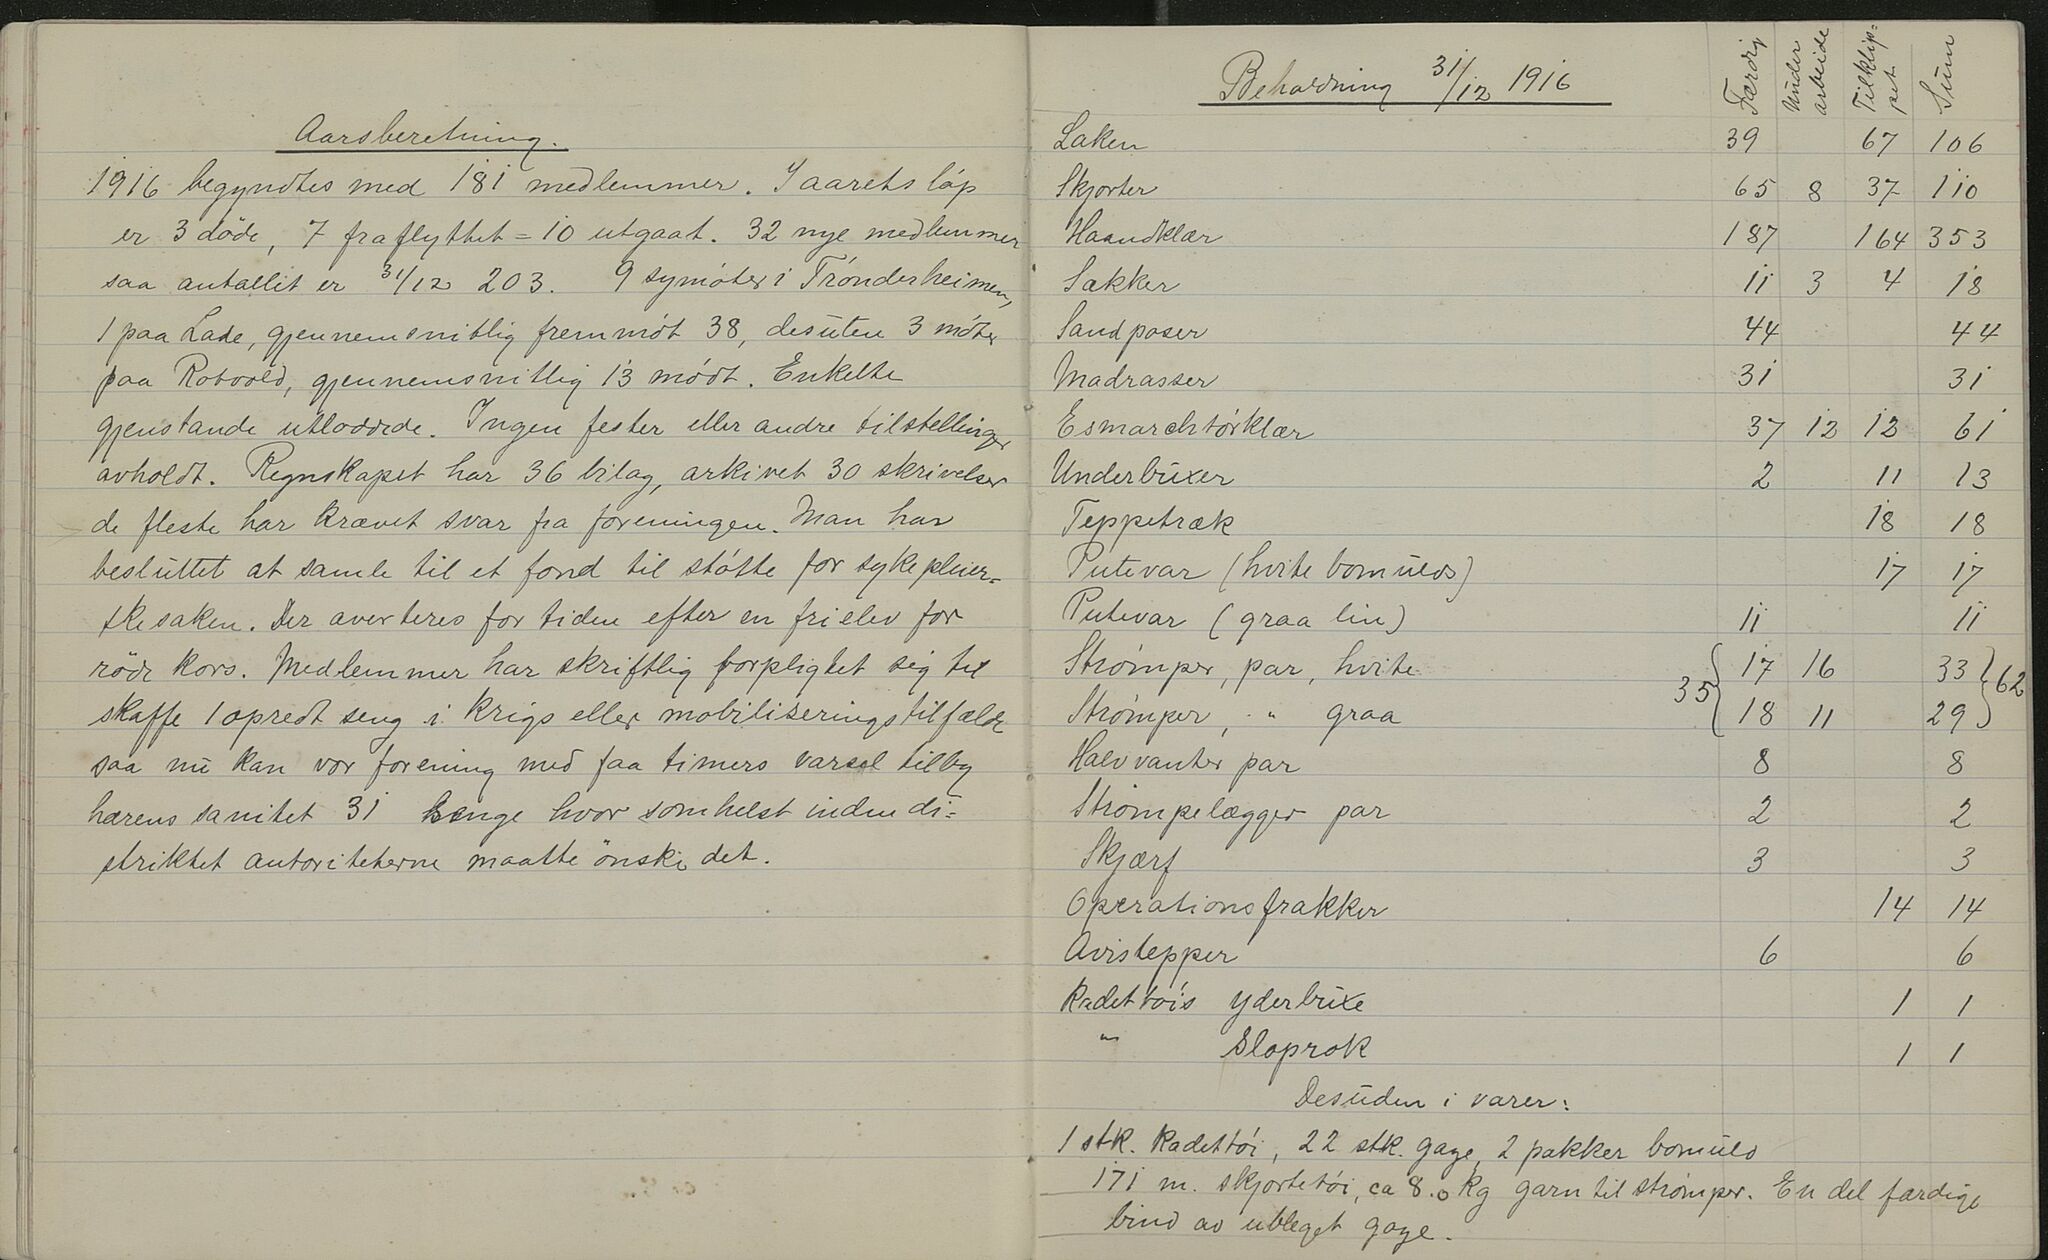 Aarsberetning.
1916 begyndtes med 181 medlemmer. I aarets löp
er 3 döde, 7 fraflyttet = 10 utgaat. 32 nye medlemmer
saa antallet er 31/12 203. 9 symöter i Trönderheimen,
1 paa Lade, gjennemsnitlig fremmöt 38, desuten 3 möter
paa Rotvold, gjennemsnitlig 13 mödt. Enkelte
gjenstande utloddede. Ingen fester eller andre tilstellinger
avholdt. Regnskapet har 36 bilag, arkivet 30 skrivelser
de fleste har krævet svar fra foreningen. Man har
besluttet at samle til et fond til stötte for sykepleier=
skesaken. Der averteres for tiden efter en frielev for
röde kors. Medlemmer har skriftlig forpligtet sig til
skaffe 1 opredt seng i krigs eller mobiliseringstilfælde
saa nu kan vor forening med faa timers varsel tilby
hærens sanitet 31 senge hvor somhelst inden di=
striktet autoriteterne maatte önske det.
Beholdning 31/12 1916 Færdig Under arbeide Tilklip=pet Sum
Laken 39 67 106
Skjorter 65 8 37 110
Haandklær 187 164 353
Sækker 11 3 4 18
Sandposer 44 44
Madrasser 31 31
Esmarchtörklær 37 12 12 61
Underbuxer 2 11 13
Teppetræk 18 18
Putevar (hvite bomulds) 17 17
Putevar (graa lin) 11 11
Strömper, par, hvite 35 { 17 16 33 } 62
Strömper, " graa 18 11 29
Halvvanter par 8 8
Strömpelægger par 2 2
Skjærf 3 3
Operationsfrakker 14 14
Avistepper 6 6
Kadettöis yderbuxe 1 1
" Sloprok 1 1
Desuden i varer:
1 stk. Kadettöi, 22 stk. gaze, 2 pakker bomuld
171 m. skjortetöi, ca 8.0 kg garn til strömper. En del færdige
bind av ubleget gaze.